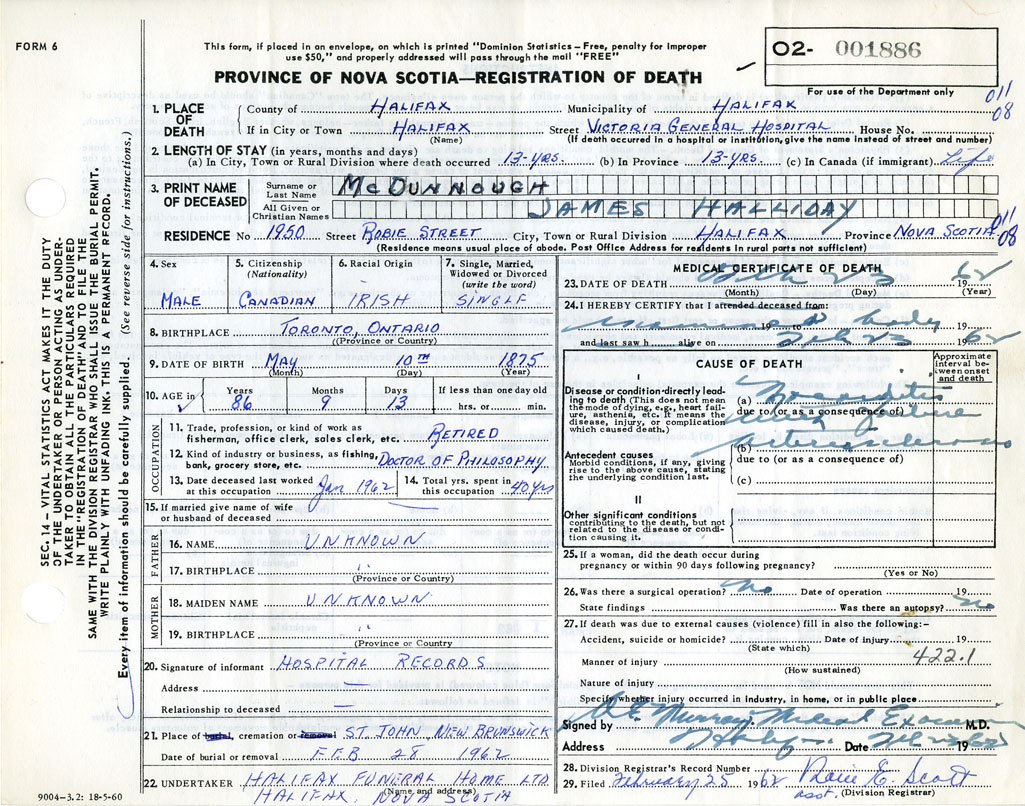 FORM 6
This form, if placed in an envelope, on which is printed "Dominion Statistics—Free, penalty for improper
use $50," and properly addressed will pass through the mail "FREE"
O2- 001886
For use of the Department only
PROVINCE OF NOVA SCOTIA—REGISTRATION OF DEATH
011
08
1. PLACE OF DEATH
County of HALIFAX Municipality of HALIFAX
If in City or Town HALIFAX Street VICTORIA GENERAL HOSPITAL House No.
(Name) (If death occurred in a hospital or institution, give the name instead of street and number)
2. LENGTH OF STAY (in years, months and days)
(a) In City, Town or Rural Division where death occurred 13-YRS. (b) In Province 13-YRS. (c) In Canada (if immigrant) Life
3. PRINT NAME OF DECEASED
Surname or Last Name McDUNNOUGH
All Given or Christian Names JAMES HALLIDAY
011
08
RESIDENCE No 1950 Street ROBIE STREET City, Town or Rural Division HALIFAX Province NOVA SCOTIA
(Residence means usual place of abode. Post Office Address for residents in rural parts not sufficient)
4. Sex
MALE
5. Citizenship
(Nationality)
CANADIAN
6. Racial Origin
IRISH
7. Single, Married,
Widowed or Divorced
(write the word)
SINGLE
8. BIRTHPLACE TORONTO, ONTARIO
(Province or Country)
9. DATE OF BIRTH MAY 10TH 1875
(Month) (Day) (Year)
10. AGE in
Years Months Days If less than one day old
86 9 13 hrs. or min.
OCCUPATION
11. Trade, profession, or kind of work as
fisherman, office clerk, sales clerk, etc. RETIRED
12. Kind of industry or business, as fishing,
bank, grocery store, etc. DOCTOR OF PHILOSOPHY
13. Date deceased last worked
at this occupation Jan 1962
14. Total yrs. spent in
this occupation 40 yrs
15. If married give name of wife
or husband of deceased
FATHER
16. NAME UNKNOWN
17. BIRTHPLACE "
(Province or Country)
MOTHER
18. MAIDEN NAME UNKNOWN
19. BIRTHPLACE "
(Province or Country)
20. Signature of informant HOSPITAL RECORDS
Address —
Relationship to deceased —
21. Place of burial, cremation or removal ST. JOHN NEW BRUNSWICK
Date of burial or removal FEB 28 1962
22. UNDERTAKER HALIFAX FUNERAL HOME LTD
(Name and address)
HALIFAX, NOVA SCOTIA
9004-3.2: 18-5-60
MEDICAL CERTIFICATE OF DEATH
23. DATE OF DEATH Feb 23 1962
(Month) (Day) (Year)
24. I HEREBY CERTIFY that I attended deceased from:
19 to body 19
and last saw h alive on Feb 23 1962
CAUSE OF DEATH
Approximate
interval be-
tween onset
and death
I
Disease or condition directly lead-
ing to death (This does not mean
the mode of dying, e.g., heart fail-
ure, asthenia, etc. It means the
disease, injury, or complication
which caused death.)
(a) Myocarditis
due to (or as a consequence of)
(b)
due to (or as a consequence of)
(c)
Antecedent causes
Morbid conditions, if any, giving
rise to the above cause, stating
the underlying condition last.
II
Other significant conditions
contributing to the death, but not
related to the disease or condi-
tion causing it.
25. If a woman, did the death occur during
pregnancy or within 90 days following pregnancy?
(Yes or No)
26. Was there a surgical operation? No Date of operation 19
State findings Was there an autopsy? no
27. If death was due to external causes (violence) fill in also the following:-
Accident, suicide or homicide? Date of injury 19
(State which)
422.1
Manner of injury
(How sustained)
Nature of injury
Specify whether injury occurred in industry, in home, or in public place
Signed by Murray Medical Examiner M.D.
Address Halifax Date Feb 19
28. Division Registrar's Record Number
29. Filed February 25 1962 E. Scott
asst. (Division Registrar)
SEC. 14—VITAL STATISTICS ACT MAKES IT THE DUTY
OF THE UNDERTAKER OR PERSON ACTING AS UNDER-
TAKER TO OBTAIN ALL THE PARTICULARS REQUIRED
IN THE "REGISTRATION OF DEATH" AND TO FILE THE
SAME WITH THE DIVISION REGISTRAR WHO SHALL ISSUE THE BURIAL PERMIT.
WRITE PLAINLY WITH UNFADING INK. THIS IS A PERMANENT RECORD.
Every item of information should be carefully supplied. (See reverse side for instructions.)